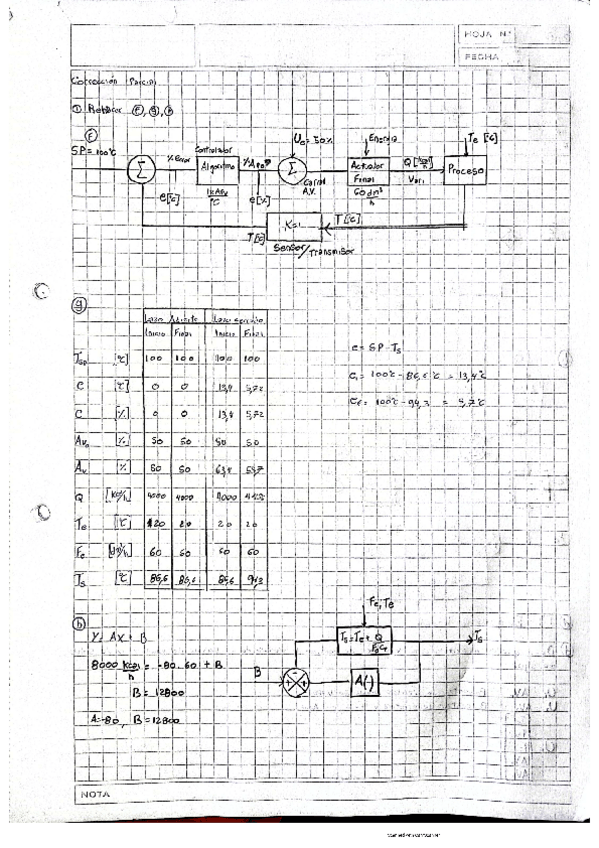 HOJA N°
FECHA
Corrección Parcial
① Rehacer ⓕ, ⓖ, ⓗ
ⓕ
SP = 100°C
Σ
% error
e[°C]
Controlador
Algoritmo
1%AV
°C
e[%]
U₀ = 50%
Σ
Carral
A.V.
Energía
Actuador
Final
60 dm³
h
Q [kcal/h]
Vari.
Te [°C]
Proceso
T[°C]
T[°C]
K=1
Sensor/Transmisor
ⓖ
Lazo Abierto Lazo cerrado
Inicio Final Inicio Final
Tsp [°C] 100 100 100 100
e [°C] 0 0 13,4 5,72
e [%] 0 0 13,4 5,72
Av₀ [%] 50 50 50 50
Av [%] 50 50 63,4 55,7
Q [kcal/h] 4000 4000 4000
Te [°C] 120 20 20 20
Fe 60 60 60 60
Ts [°C] 86,6 86,6 86,6 94,3
e = SP - Ts
ei = 100°C - 86,6°C = 13,4°C
ef = 100°C - 94,3 = 5,7°C
ⓗ
Y = AX + B
8000 kcal/h = -80.60 + B
B = 12800
A=-80, B=12800
Fe, Te
Ts = Te + Q
Ts
B
A()
NOTA